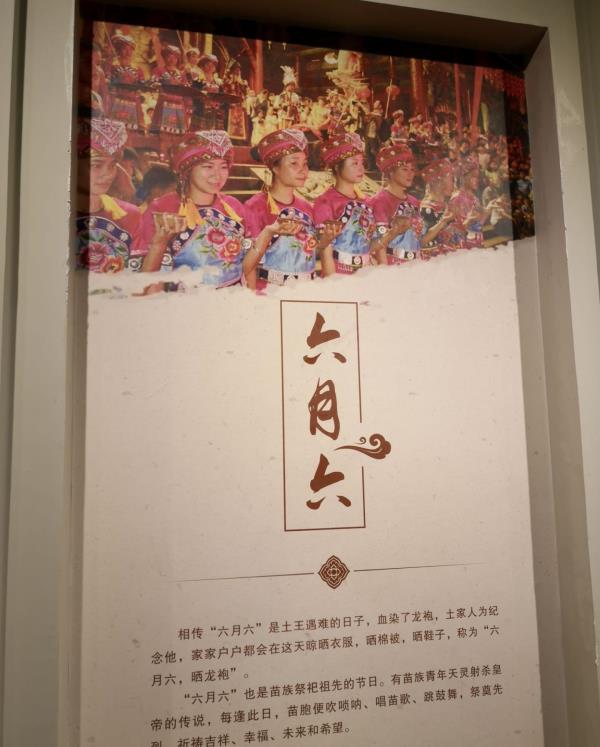 六月六
相传“六月六”是土王遇难的日子，血染了龙袍，土家人为纪
念他，家家户户都会在这天晾晒衣服，晒棉被，晒鞋子，称为“六
月六，晒龙袍”。
“六月六”也是苗族祭祀祖先的节日。有苗族青年天灵射杀皇
帝的传说，每逢此日，苗胞便吹唢呐、唱苗歌、跳鼓舞，祭奠先
烈，祈祷吉祥、幸福、未来和希望。